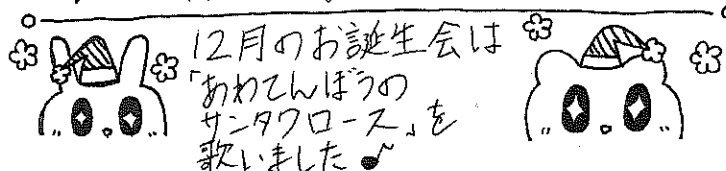 12月のお誕生会は
「あわてんぼうの
サンタクロース」を
歌いました♪